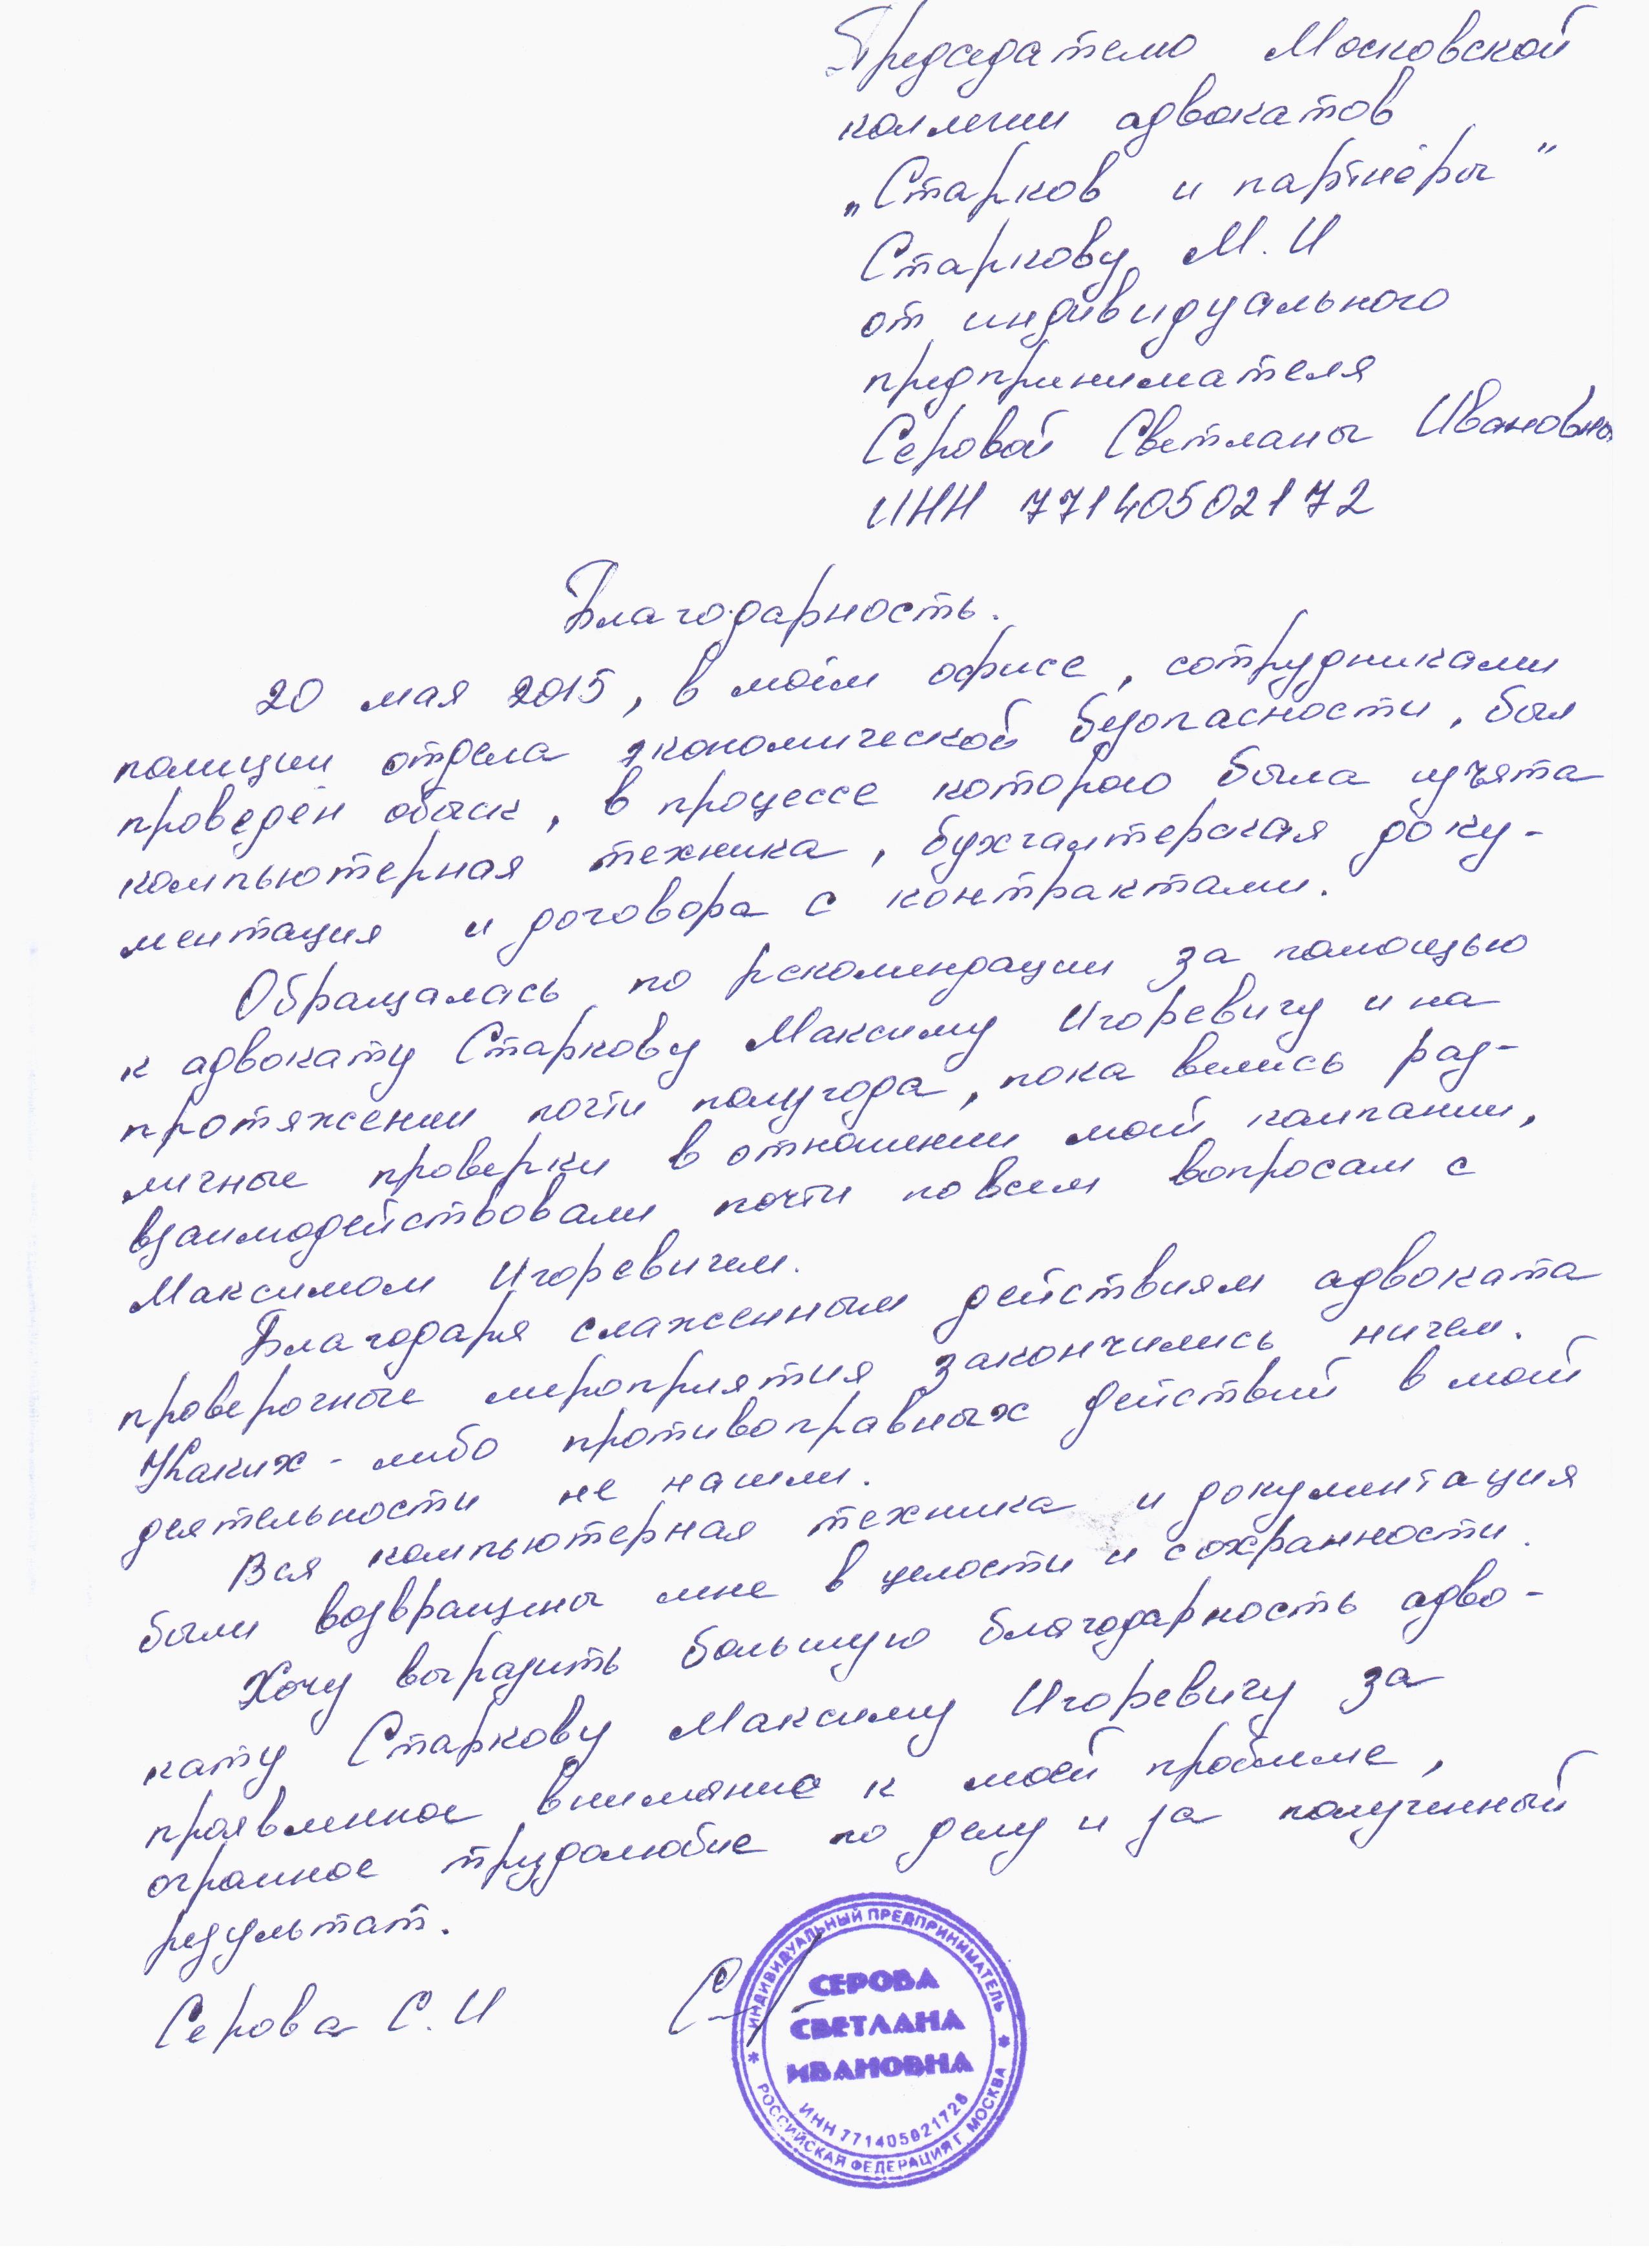 Председателю Московской
коллегии адвокатов
„Старков и партнёры"
Старкову М.И
от индивидуального
предпринимателя
Серовой Светланы Ивановны
ИНН 77140502172
Благодарность.
20 мая 2015, в моём офисе, сотрудниками
полиции отдела экономической безопасности, был
проведён обыск, в процессе которого была изъята
компьютерная техника, бухгалтерская доку-
ментация и договора с контрактами.
Обращалась по рекомендации за помощью
к адвокату Старкову Максиму Игоревичу и на
протяжении почти полугода, пока велись раз-
личные проверки в отношении моей компании,
взаимодействовали почти по всем вопросам с
Максимом Игоревичем.
Благодаря слаженным действиям адвоката
проверочные мероприятия закончились ничем.
Каких-либо противоправных действий в моей
деятельности не нашли.
Вся компьютерная техника и документация
были возвращены мне в целости и сохранности.
Хочу выразить большую благодарность адво-
кату Старкову Максиму Игоревичу за
проявленное внимание к моей проблеме,
огромное трудолюбие по делу и за полученный
результат.
Серова С.И
ИНДИВИДУАЛЬНЫЙ ПРЕДПРИНИМАТЕЛЬ
СЕРОВА
СВЕТЛАНА
ИВАНОВНА
ИНН 771405021728
* РОССИЙСКАЯ ФЕДЕРАЦИЯ Г. МОСКВА *